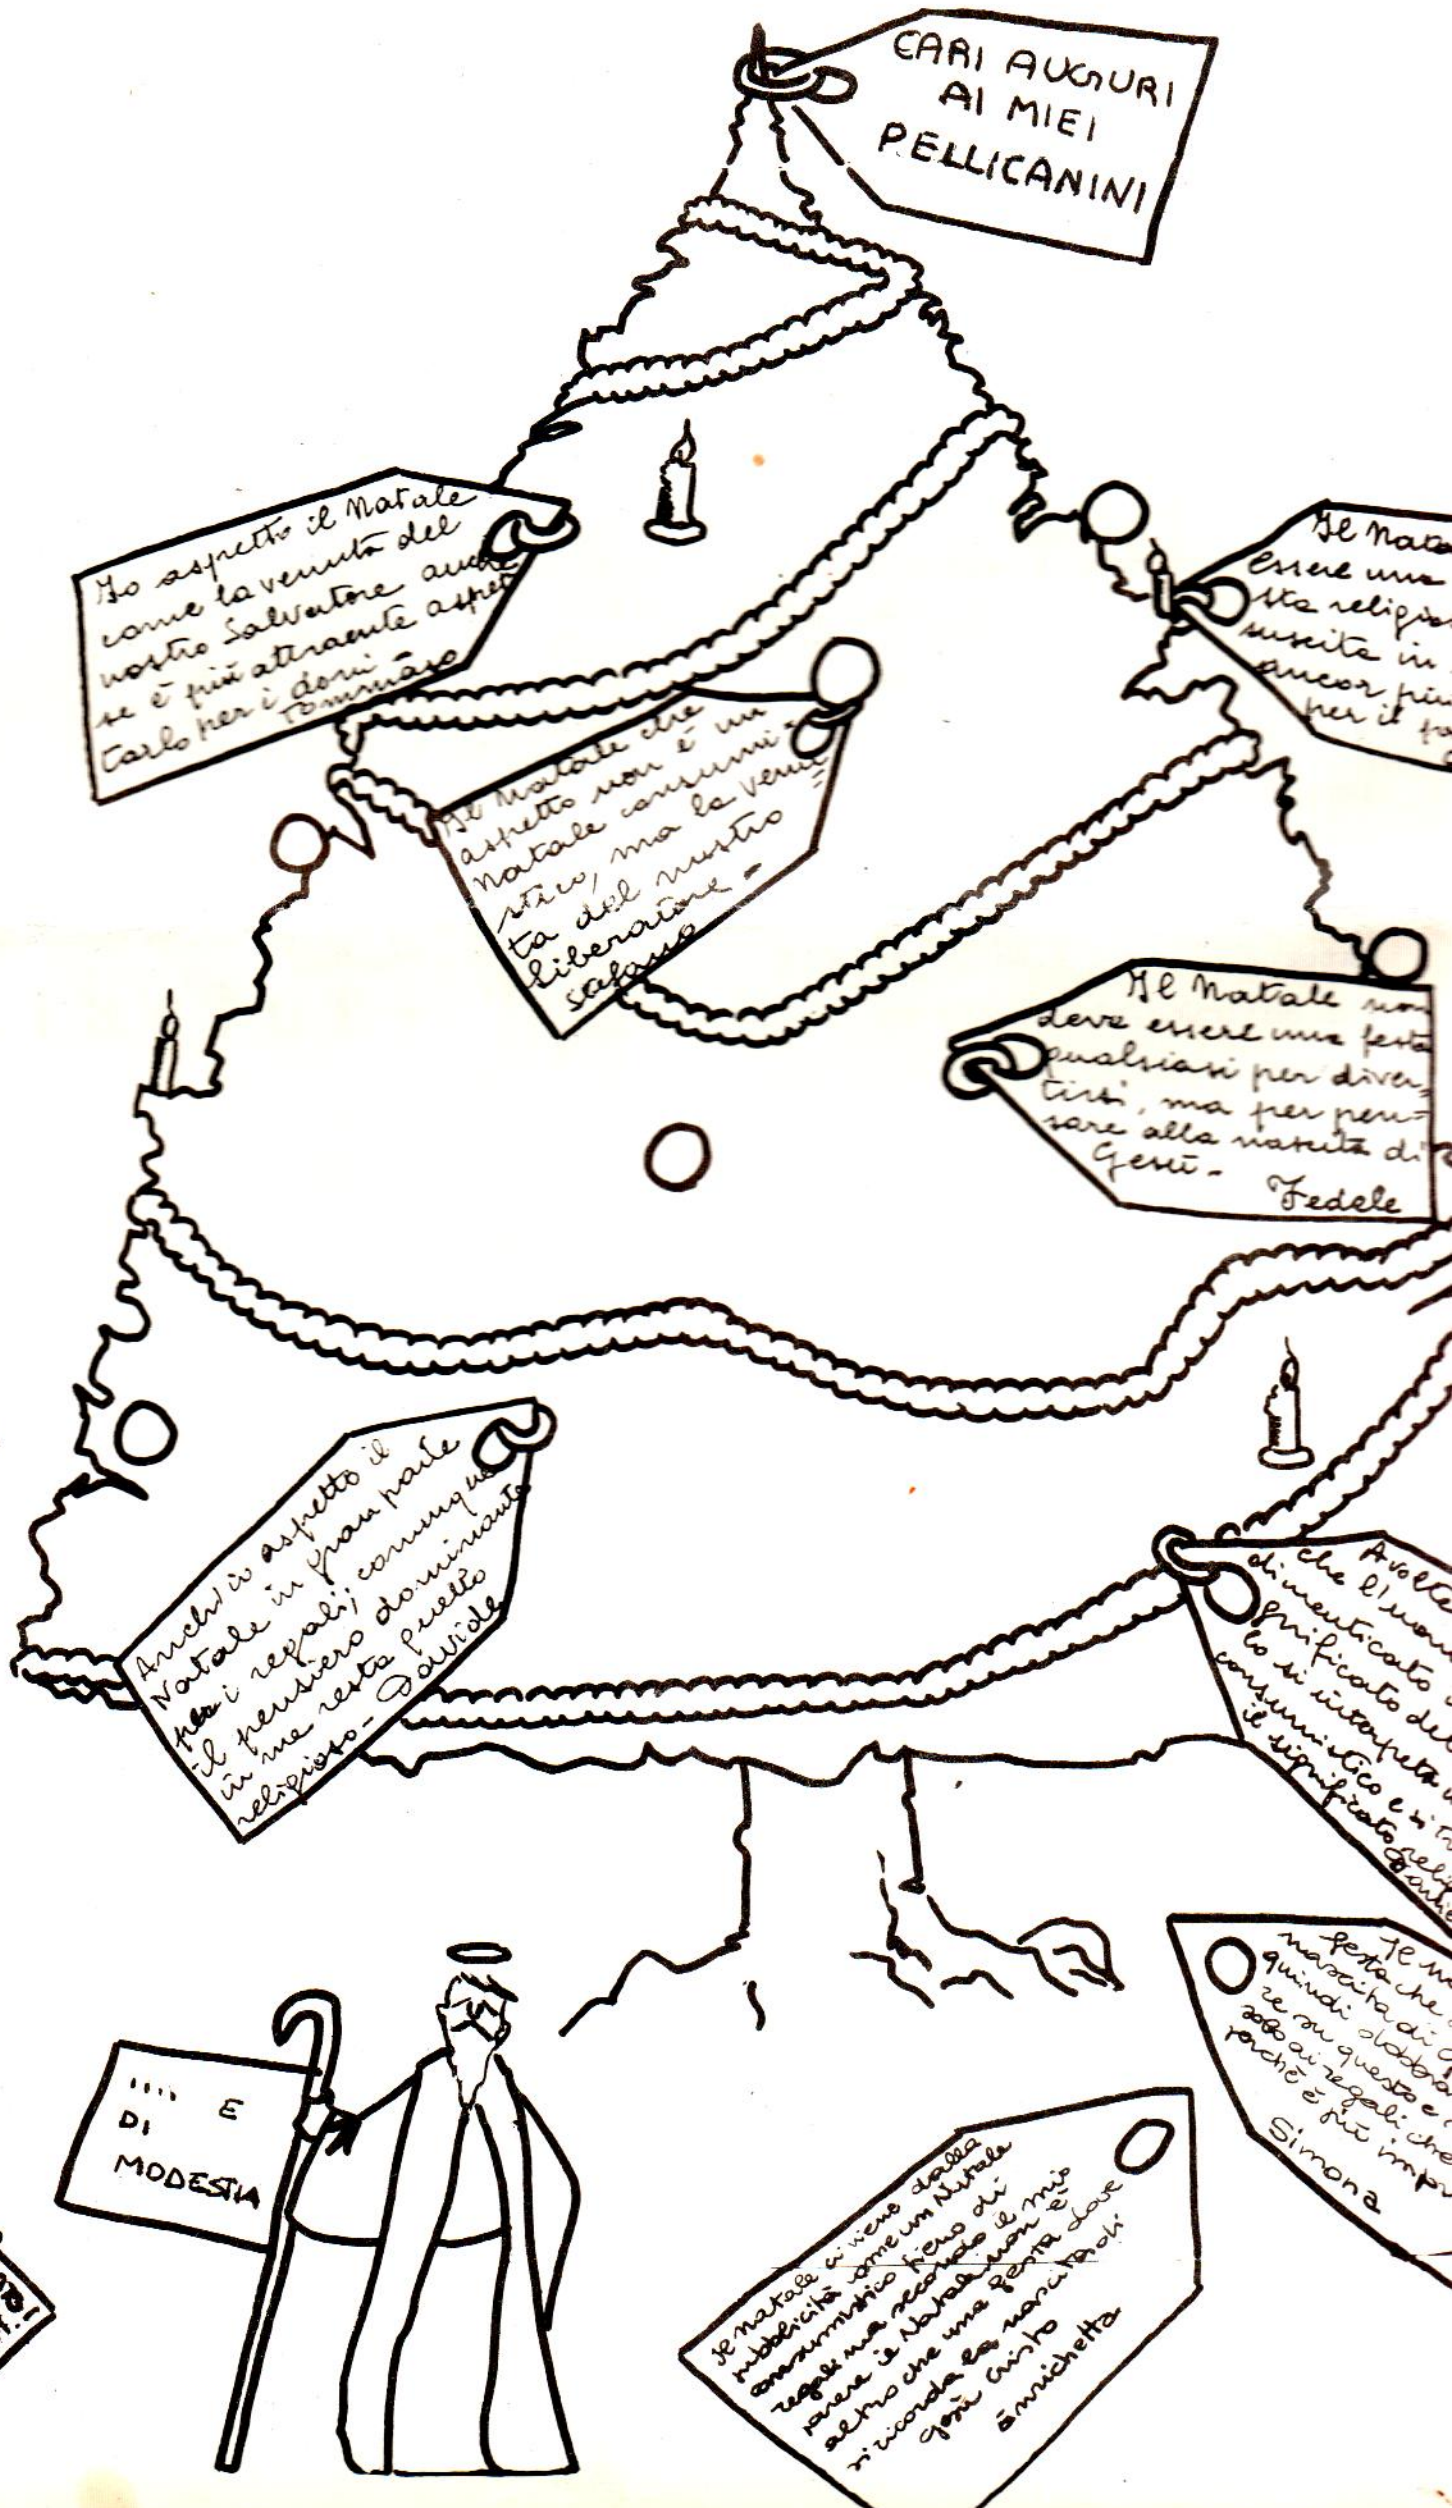 CARI AUGURI
AI MIEI
PELLICANINI
Io aspetto il Natale
come la venuta del
nostro Salvatore anche
se è più attraente aspet
tarlo per i doni -
Tommaso
Il Nata
essere una
sta religio
suscita in
ancor più
per il
Il Natale che
aspetto non è un
Natale consumi-
stico, ma la venu=
ta del nostro
Liberatore -
Il Natale non
deve essere una festa
qualsiasi per diver=
tirsi, ma per pen=
sare alla nascita di
Gesù - Fedele
Anch'io aspetto il
Natale in gran parte
per i regali; comunque
il pensiero dominante
in me resta quello
religioso - Davide
A volte
che l'uom
dimenticato
gnificato del
lo si interpreta
consumistico e si tr
il significato reli
Il n
festa che
nascita di
quindi dobbia
re su questo e
solo ai regali che
perché è più impor
Simona
.... E
DI
MODESTIA
Il natale ci viene dalla
pubblicità come un Natale
consumistico pieno di
regali ma secondo il mio
parere il Natale non è
altro che una festa dove
si ricorda la nascita di
Gesù Cristo
Enrichetta